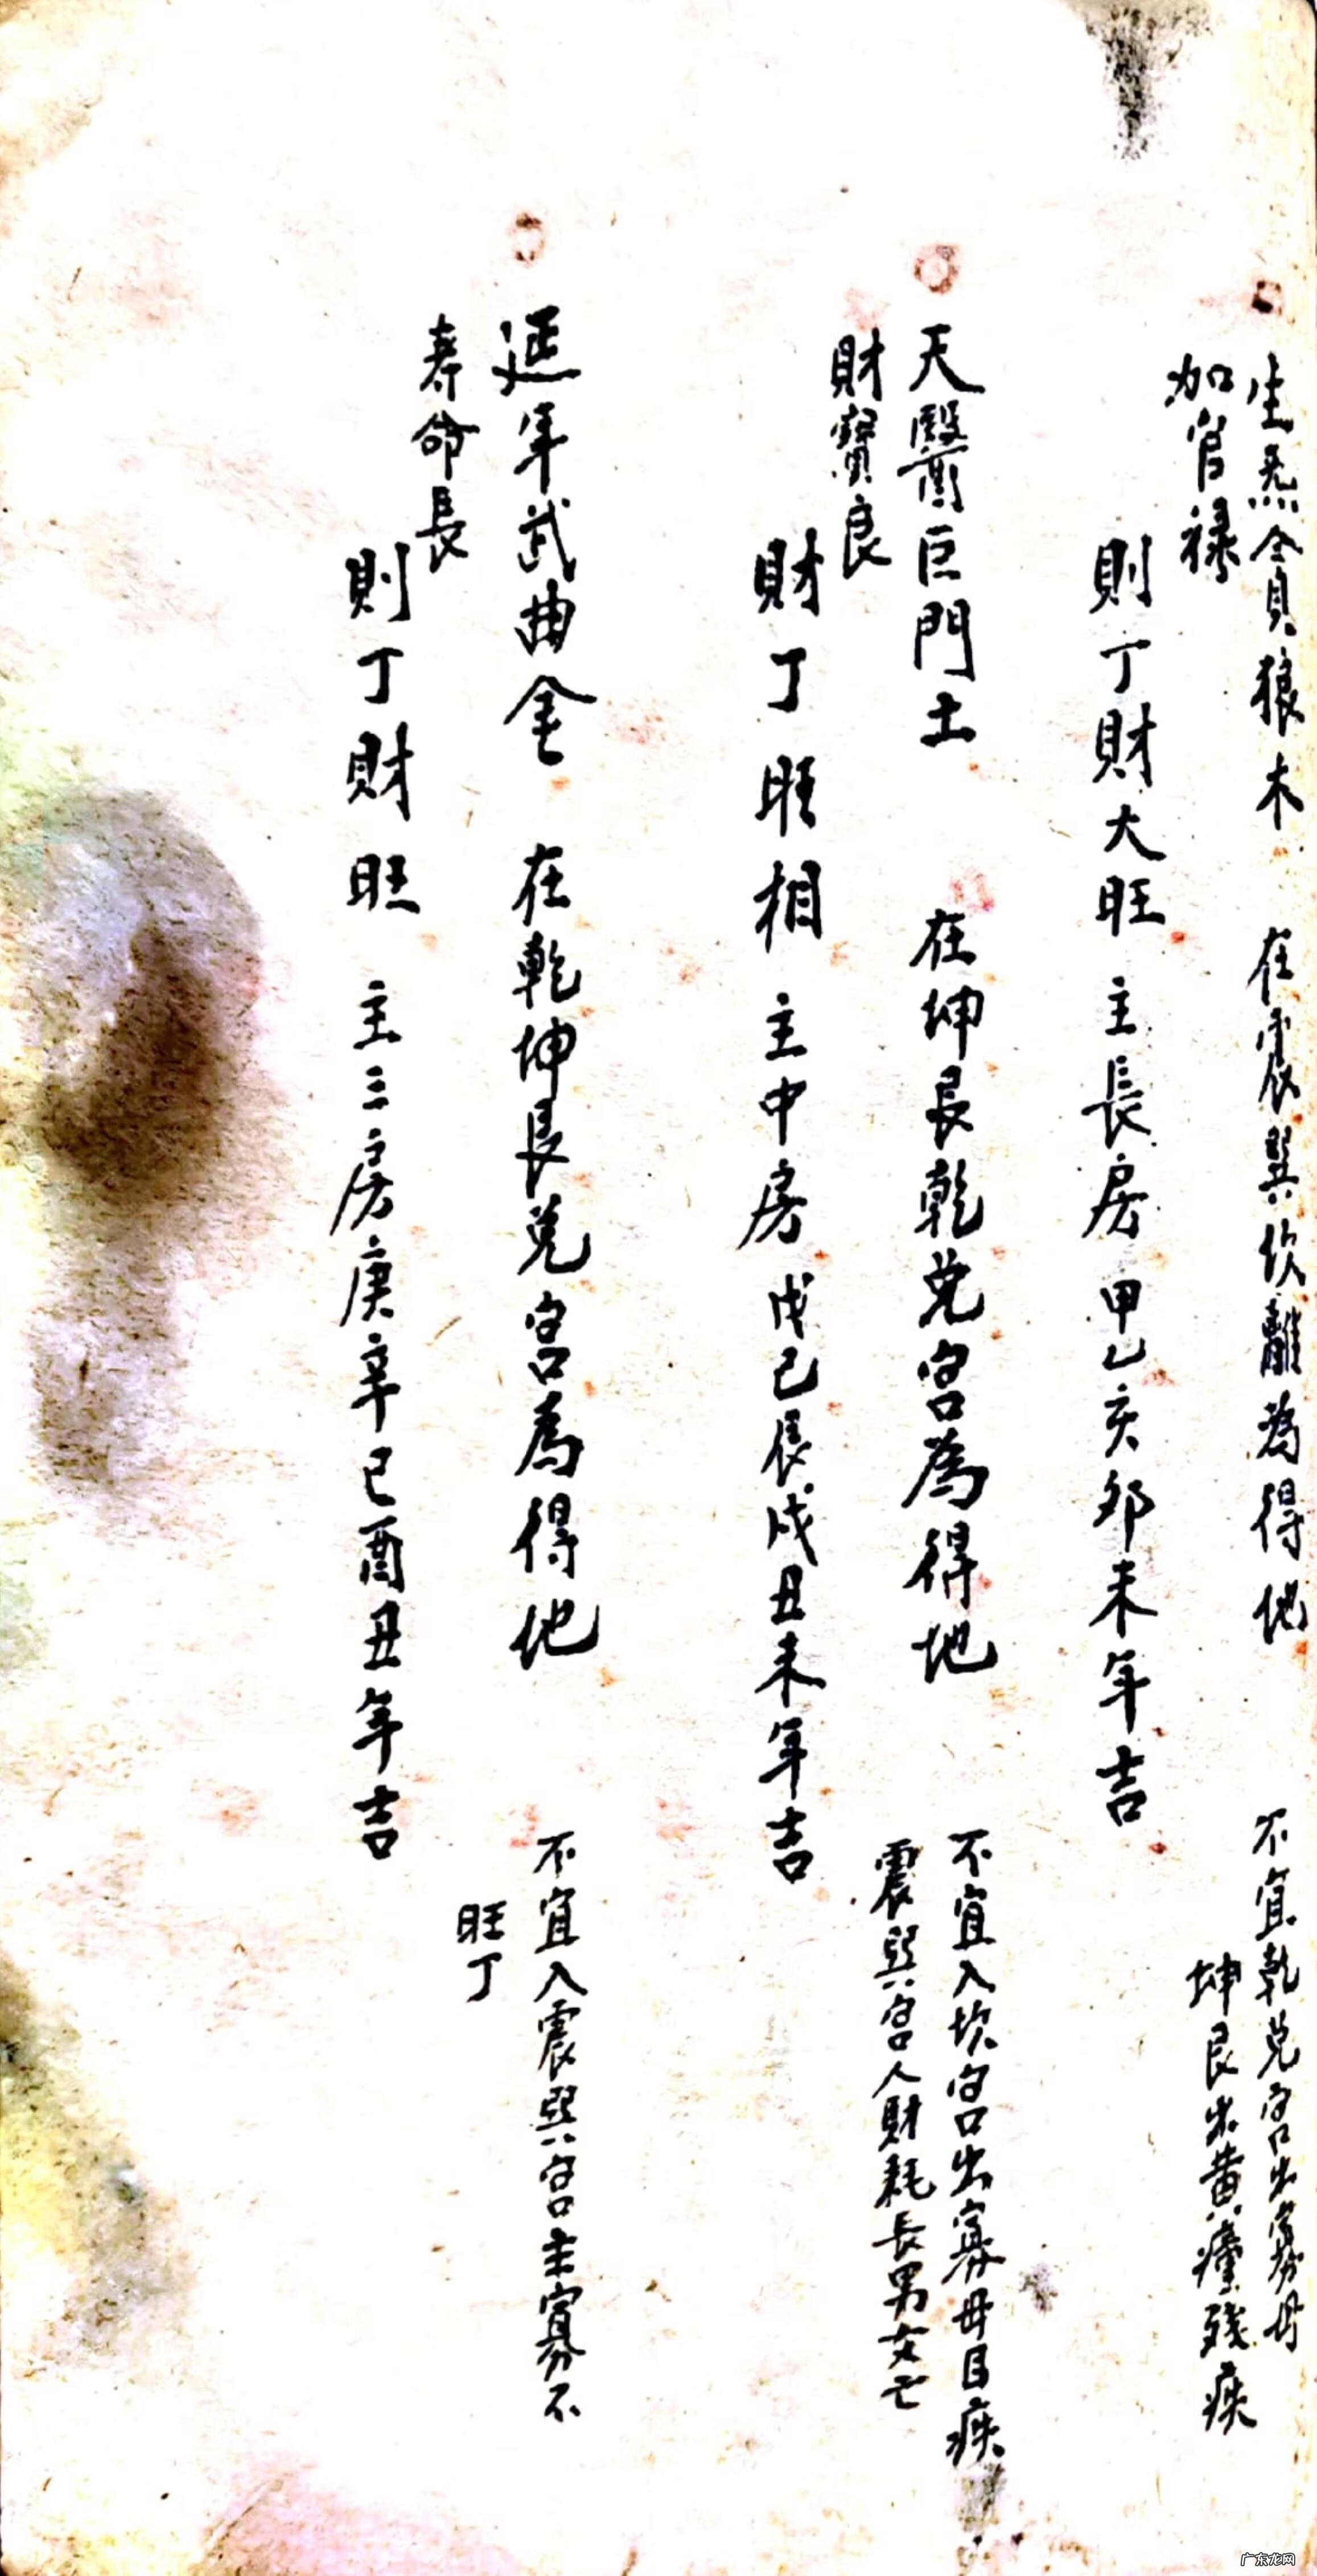 生炁貪狼木 在震巽坎離為得地 不宜乾兌宮出寡母
坤艮出黃瘇殘疾
加官祿
則丁財大旺 主長房甲乙亥卯未年吉
天醫巨門土 在坤艮乾兌宮為得地 不宜入坎宮出寡母目疾
震巽宮人財耗長男女亡
財寶良
財丁旺相 主中房戊己辰戌丑未年吉
延年武曲金 在乾坤艮兌宮為得地 不宜入震巽宮主寡不
旺丁
寿命長
則丁財旺 主三房庚辛巳酉丑年吉
广东龙网